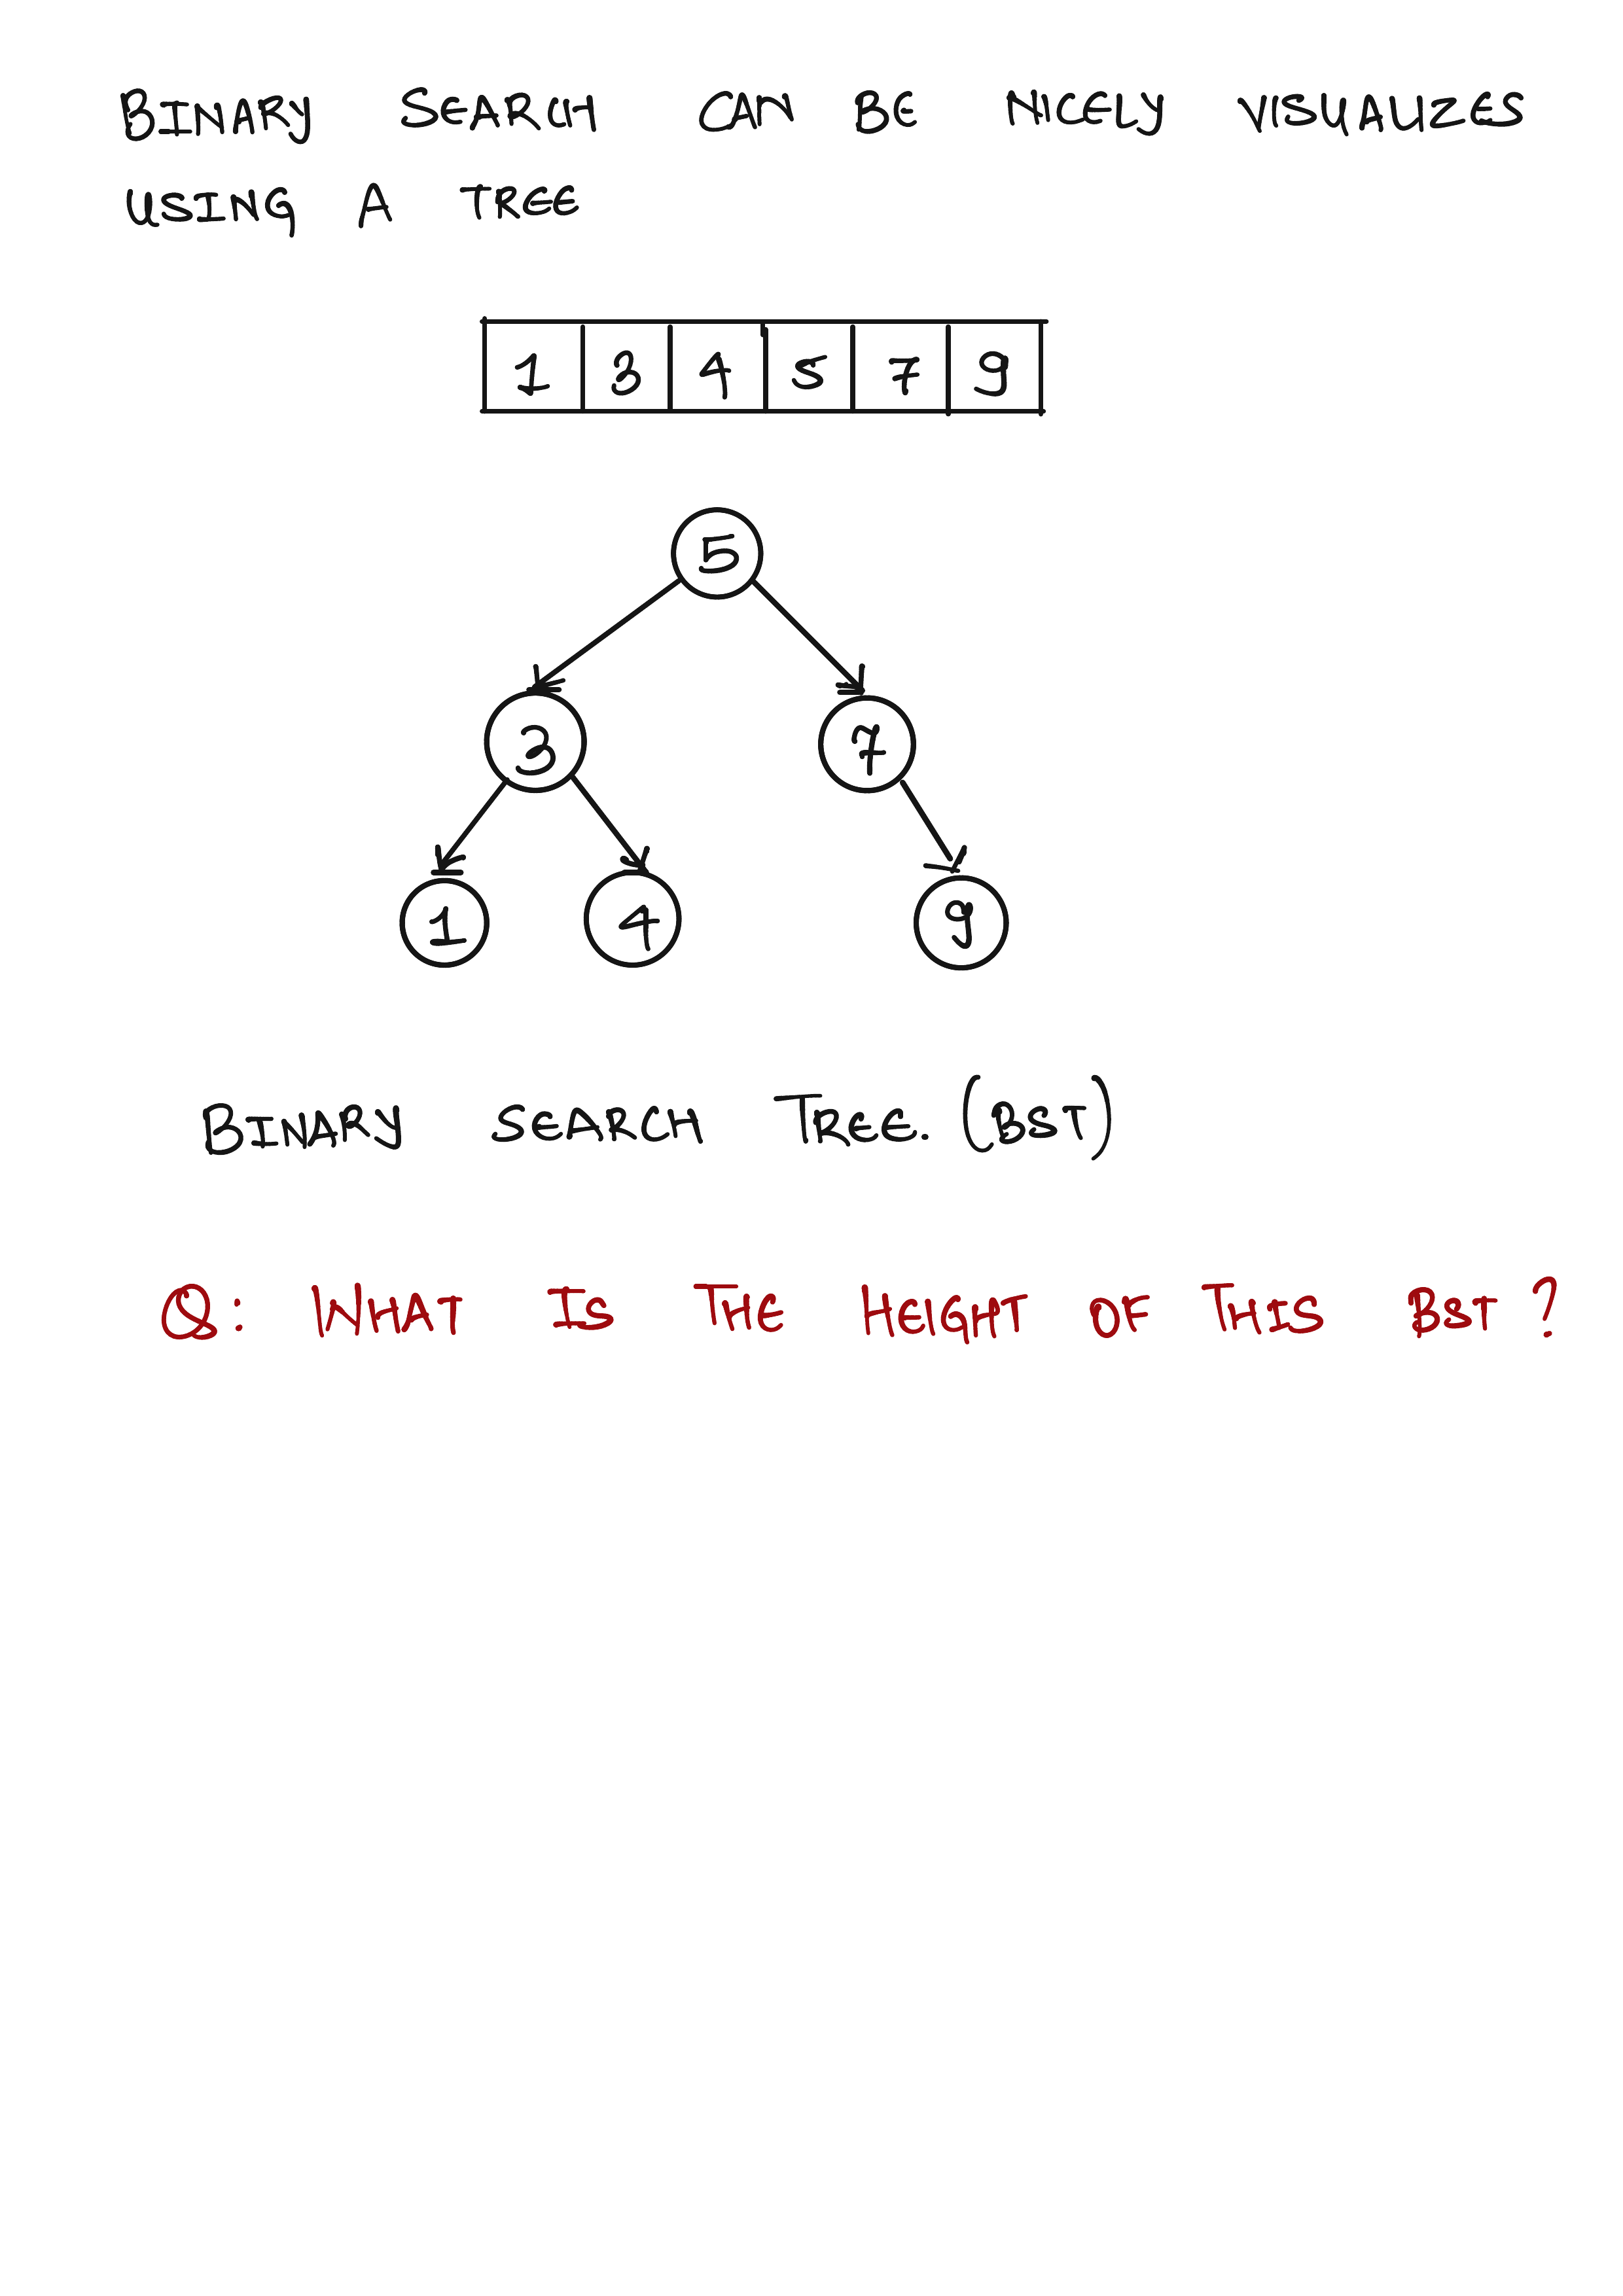 BINARY SEARCH CAN BE NICELY VISUALIZES
USING A TREE
1 3 4 5 7 9
5
3 7
1 4 9
BINARY SEARCH TREE. (BST)
Q: WHAT IS THE HEIGHT OF THIS BST ?